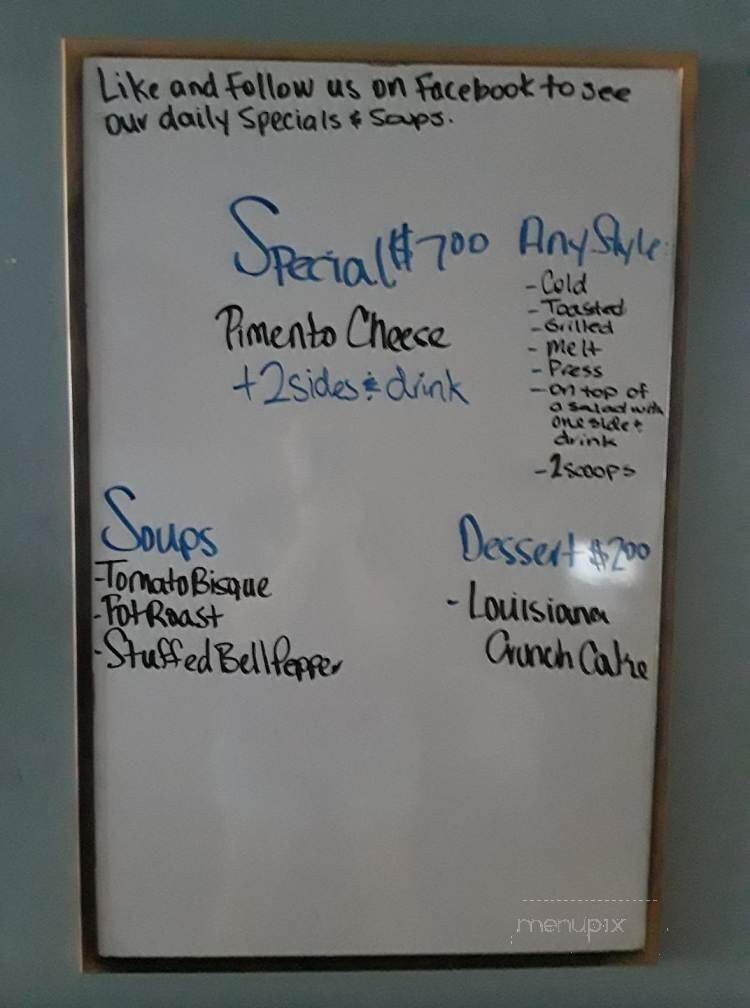 Like and Follow us on Facebook to see
our daily Specials & Soups.
Special $700
Pimento Cheese
+2 sides & drink
Any Style
- Cold
- Toasted
- Grilled
- melt
- Press
- on top of
a salad with
one side &
drink
- 2 scoops
Soups
- Tomato Bisque
- Pot Roast
- Stuffed Bell Pepper
Dessert $200
- Louisiana
Crunch Cake
menupix